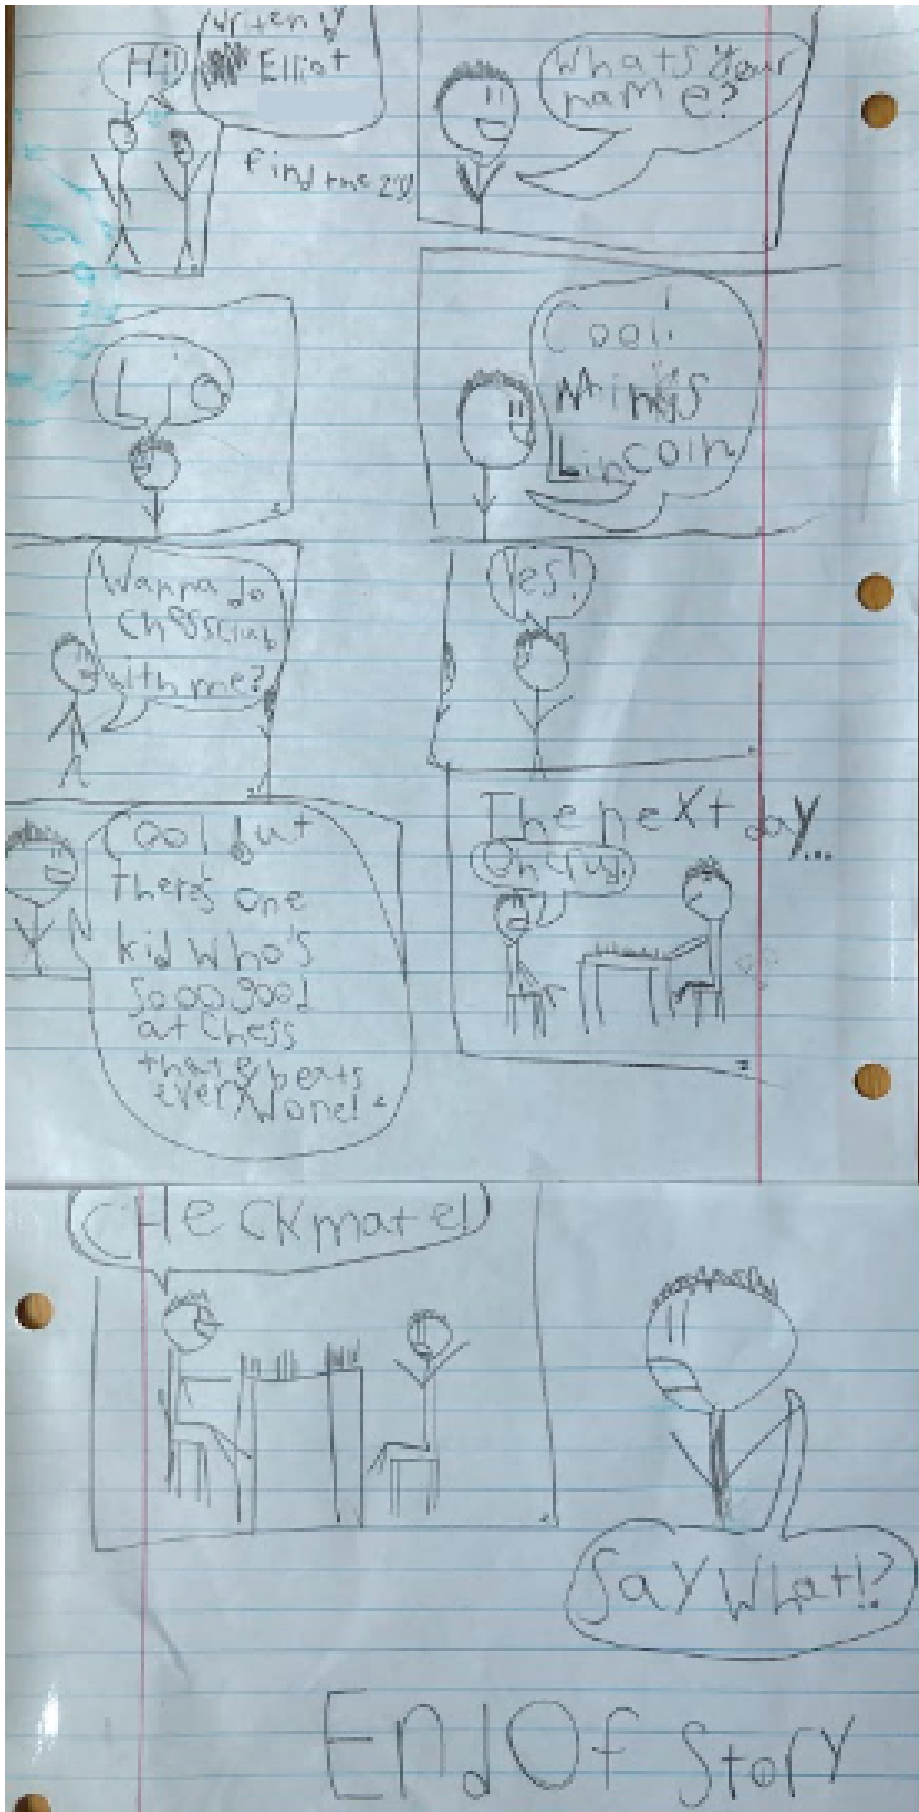 Hi!
Writen by
Elliot
find the 2's!
Whats your
name?
Lio
Cool!
Mings
Lincoln
Wanna do
chessclub
with me?
Yes!
Cool but
there's one
kid who's
Sooo good
at chess
that e beats
everyone!
The next day...
Oh crud.
CHeckmate!
Say What!?
End Of Story